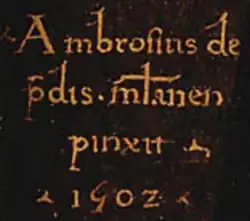 Ambrosius de
p̄dis · mltanen
pinxit
1502